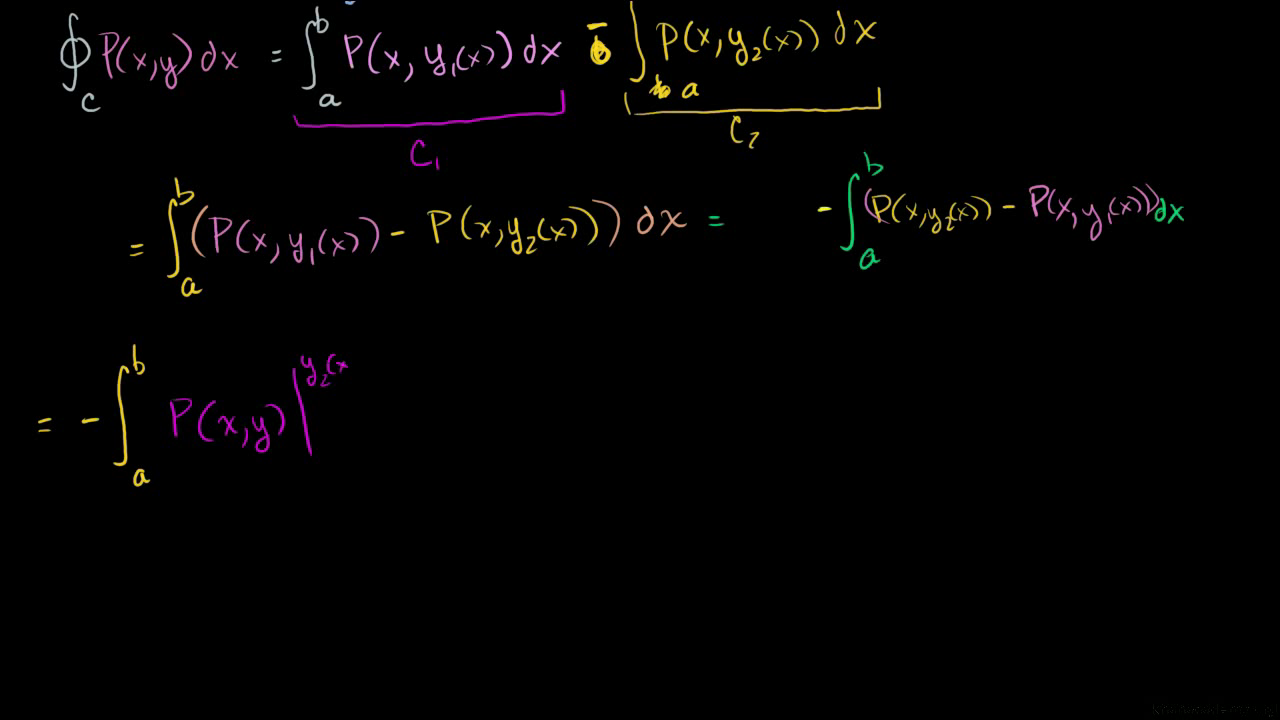 ∮_C P(x,y) dx = ∫_a^b P(x, y₁(x)) dx - ∫_a P(x, y₂(x)) dx
C₁ C₂
= ∫_a^b (P(x, y₁(x)) - P(x, y₂(x))) dx = - ∫_a^b (P(x, y₂(x)) - P(x, y₁(x))) dx
= - ∫_a^b P(x,y) |^{y₂(x}